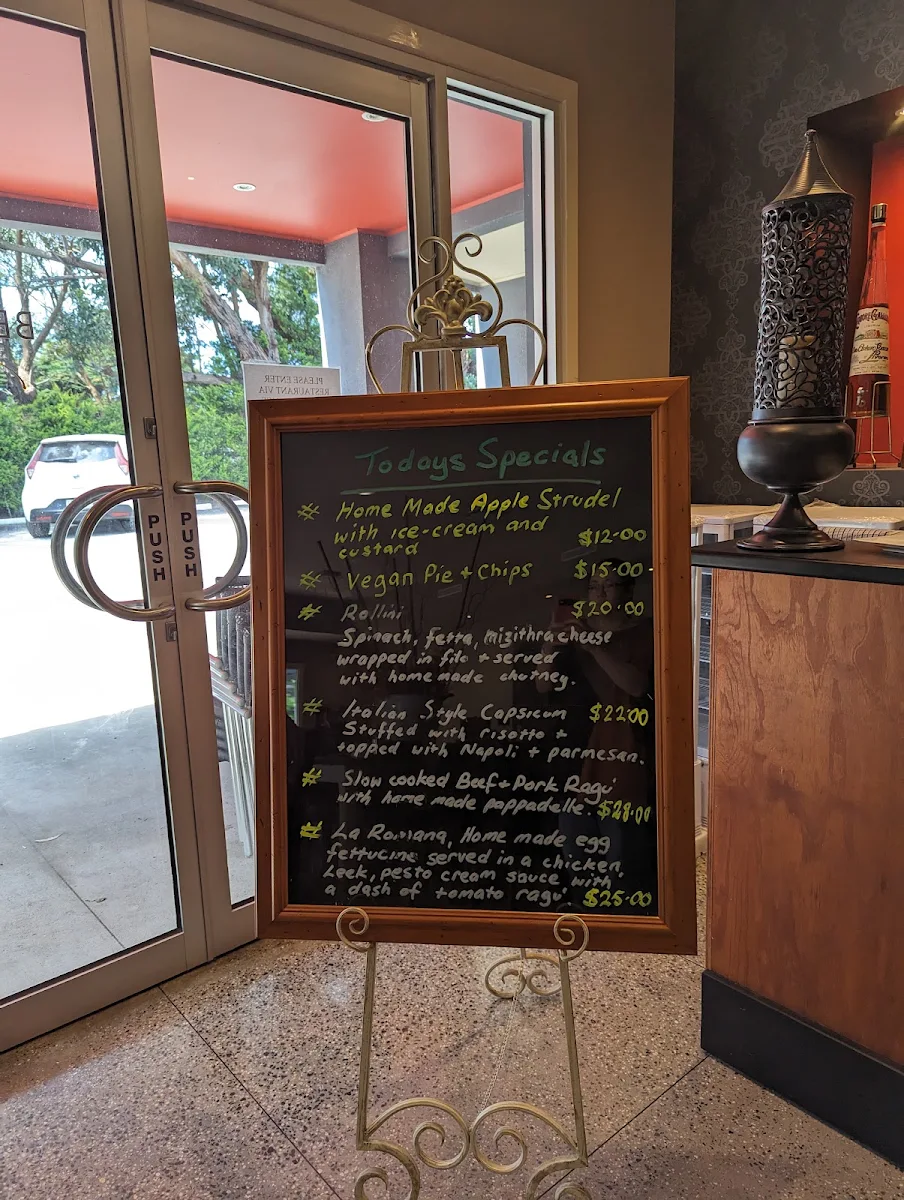 PLEASE ENTER
RESTAURANT VIA
PUSH
PUSH
Todays Specials
# Home Made Apple Strudel
with ice-cream and
custard $12.00
# Vegan Pie + Chips $15.00
# Rollini $20.00
Spinach, fetta, mizithra cheese
wrapped in filo + served
with home made chutney.
# Italian Style Capsicum $22.00
Stuffed with risotto +
topped with Napoli + parmesan.
# Slow cooked Beef + Pork Ragu'
with home made pappadelle. $28.00
# La Romana, Home made egg
fettucine served in a chicken,
Leek, pesto cream sauce with
a dash of tomato ragu' $25.00